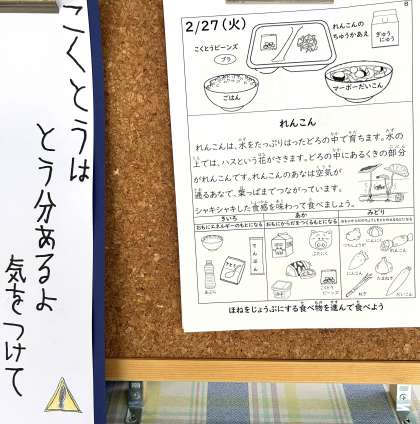 こくとうは
とう分あるよ
気をつけて
2/27(火)
こくとうビーンズ
プラ
ごはん
れんこんの
ちゅうかあえ
ぎゅう
にゅう
マーボーだいこん
れんこん
れんこんは、水をたっぷりはったどろの中で育ちます。水の
上では、ハスという花がさきます。どろの中にあるくきの部分
がれんこんです。れんこんのあなは空気が
通るあなで、葉っぱまでつながっています。
シャキシャキした食感を味わって食べましょう。
きいろ
おもにエネルギーのもとになる
あか
おもにからだをつくるもとになる
みどり
でんぷん
さとう
あぶら
ぶたにく
こくとう
ビーンズ
れんこん
にんじん
だいこん
ほねをじょうぶにする食べ物を進んで食べよう